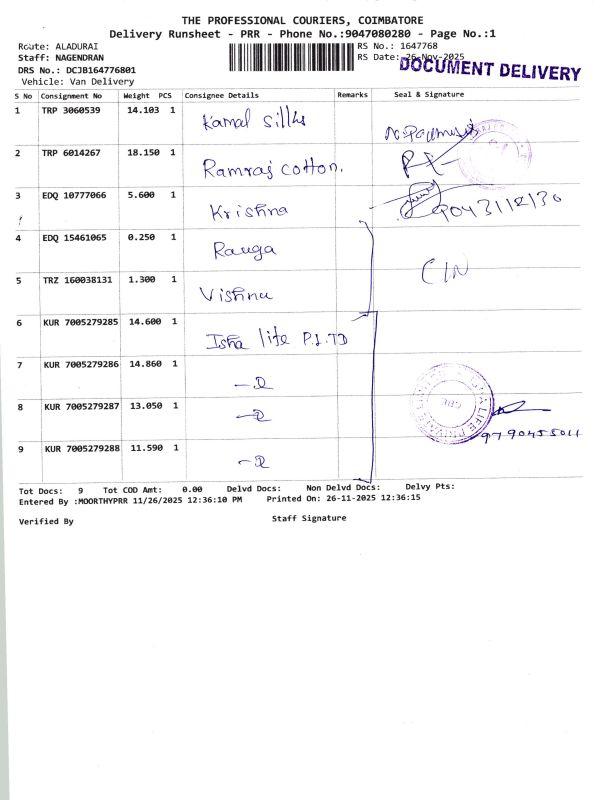 THE PROFESSIONAL COURIERS, COIMBATORE
Delivery Runsheet - PRR - Phone No.:9047080280 - Page No.:1
Route: ALADURAI RS No.: 1647768
Staff: NAGENDRAN RS Date: 26-Nov-2025
DOCUMENT DELIVERY
DRS No.: DCJB164776801
Vehicle: Van Delivery
S No Consignment No Weight PCS Consignee Details Remarks Seal & Signature
1 TRP 3060539 14.103 1 Kamal Sillks
2 TRP 6014267 18.150 1 Ramraj Cotton.
3 EDQ 10777066 5.600 1 Krishna 9043112130
4 EDQ 15461065 0.250 1 Ranga
5 TRZ 160038131 1.300 1 Vishnu
6 KUR 7005279285 14.600 1 Isha life P.LTD
7 KUR 7005279286 14.860 1
8 KUR 7005279287 13.050 1
9 KUR 7005279288 11.590 1
9790455011
Tot Docs: 9 Tot COD Amt: 0.00 Delvd Docs: Non Delvd Docs: Delvy Pts:
Entered By :MOORTHYPRR 11/26/2025 12:36:10 PM Printed On: 26-11-2025 12:36:15
Verified By Staff Signature